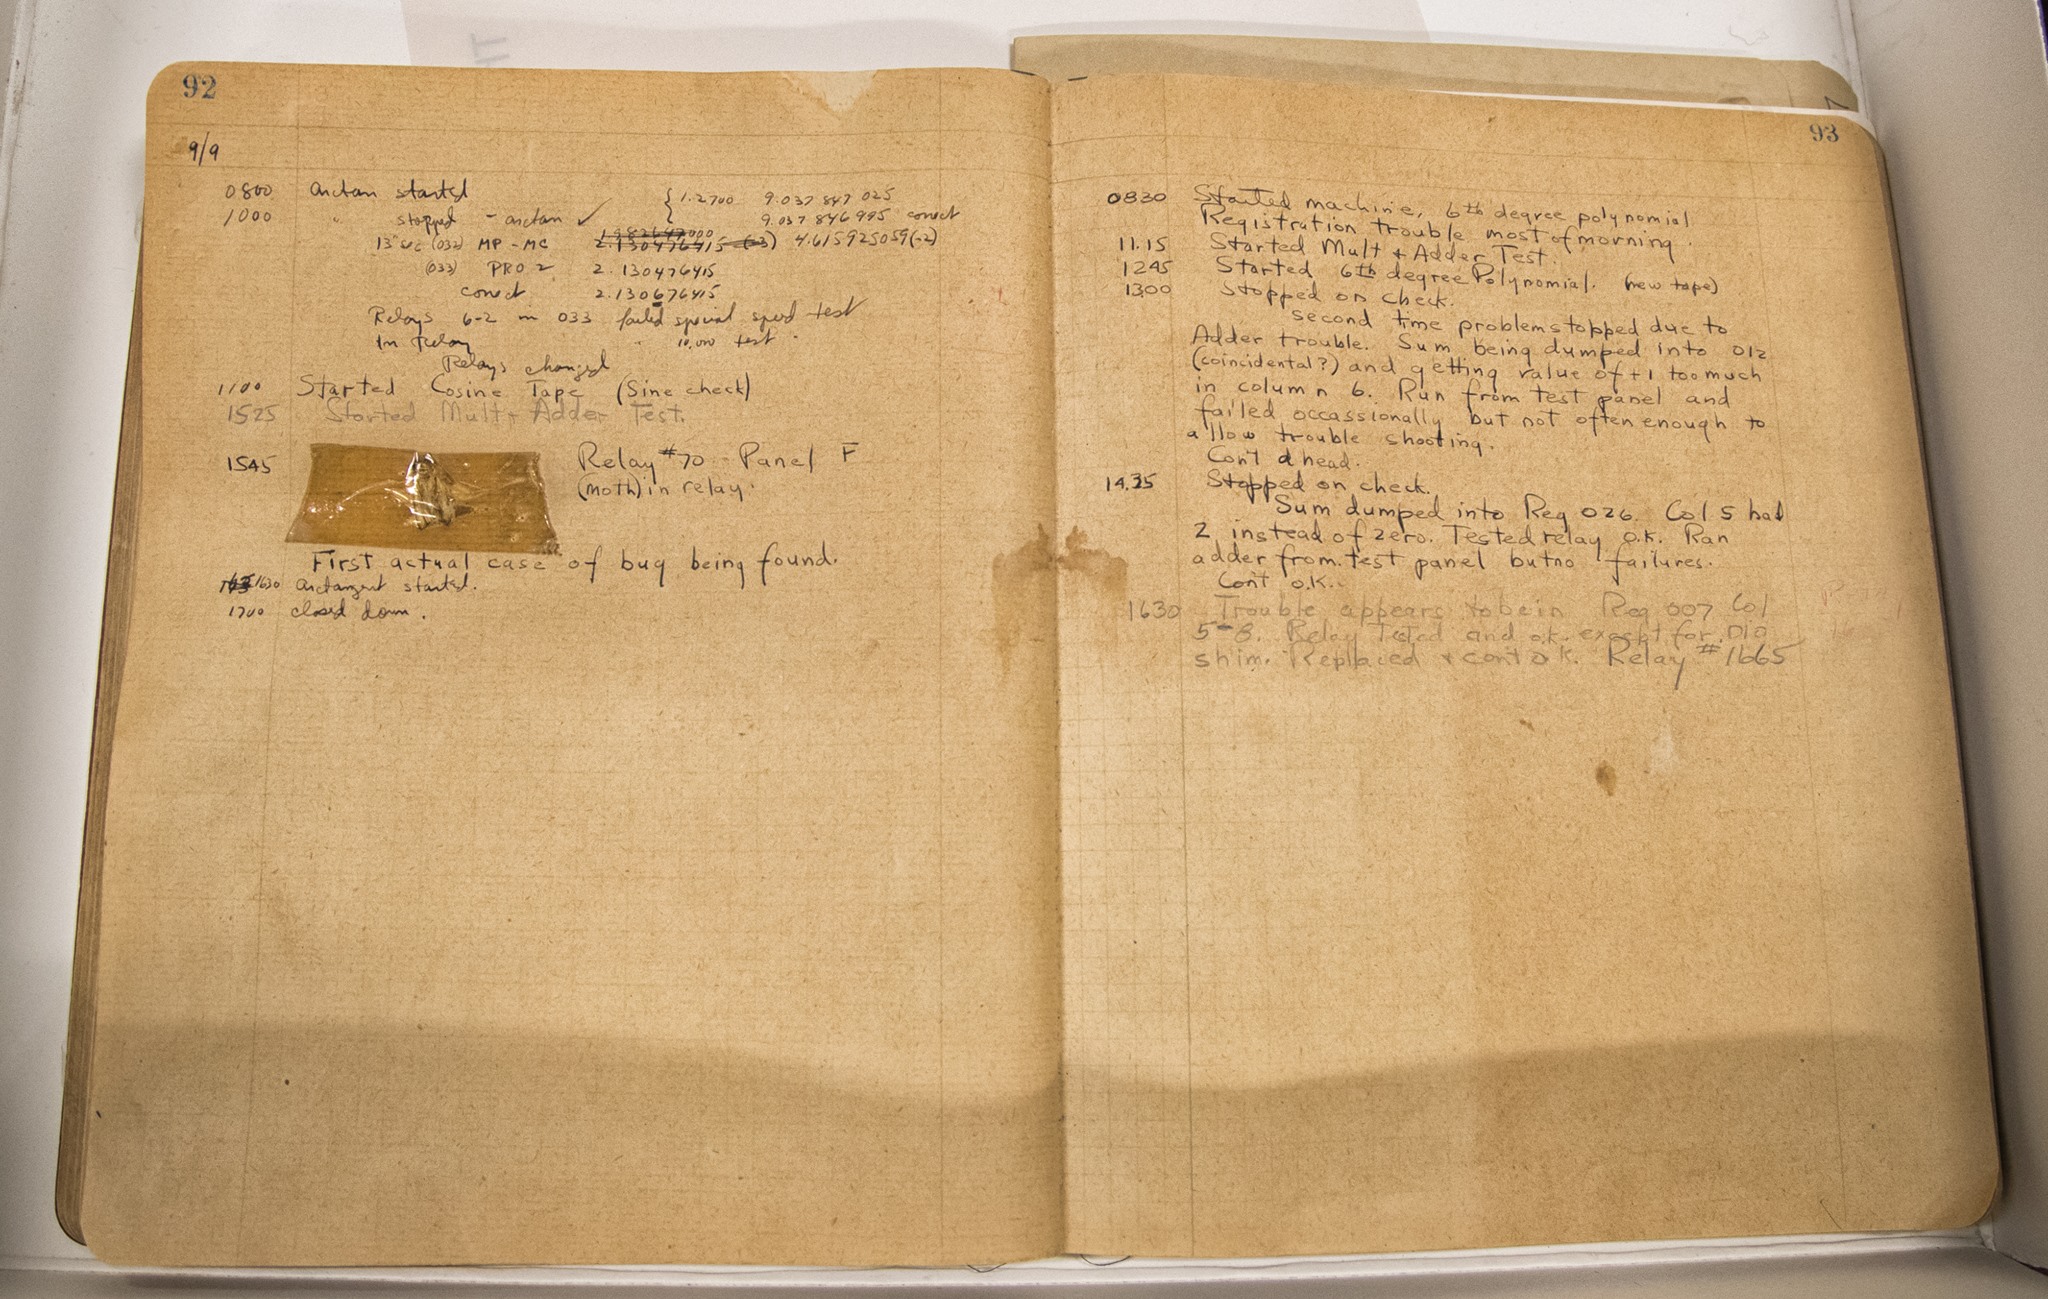 92
9/9
0800 arctan started
1000 " stopped - arctan ✓ { 1.2700 9.037 847 025
9.037 846 995 correct
13"uc (032) MP - MC 2.130476415 4.615925059(-2)
(033) PRO 2 2.130476415
correct 2.130676415
Relays 6-2 in 033 failed special speed test
In Relay " 10,000 test .
Relays changed
1100 Started Cosine Tape (Sine check)
1525 Started Mult + Adder Test.
1545 Relay #70 Panel F
(moth) in relay.
First actual case of bug being found.
1630 arctangent started.
1700 closed down.
93
0830 Started machine, 6th degree polynomial
Registration trouble most of morning.
11.15 Started Mult + Adder Test.
1245 Started 6th degree Polynomial. (new tape)
1300 Stopped on check.
second time problem stopped due to
Adder trouble. Sum being dumped into 012
(coincidental?) and getting value of +1 too much
in column 6. Run from test panel and
failed occassionally but not often enough to
allow trouble shooting.
Con't ahead.
14.35 Stopped on check.
Sum dumped into Reg 026. Col 5 had
2 instead of zero. Tested relay O.K. Ran
adder from test panel but no failures.
Con't o.K.
1630 Trouble appears to be in Reg 007 Col
5-8. Relay Tested and o.k. except for .010
shim. Replaced + con't o.K. Relay #1665